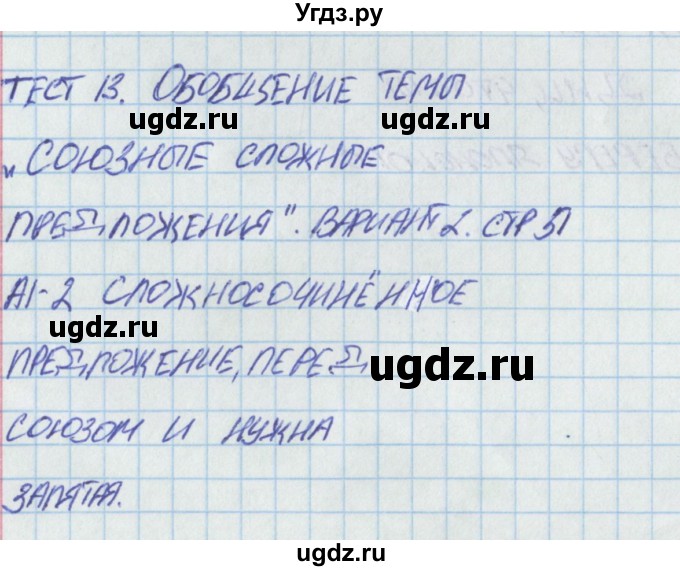 Угдз.ру
ТЕСТ 13. ОБОБЩЕНИЕ ТЕМЫ
ugdz.ru ugdz.ru
„СОЮЗНЫЕ СЛОЖНЫЕ
ПРЕДЛОЖЕНИЯ". ВАРИАНТ 2. СТР 51
А1-2 СЛОЖНОСОЧИНЁННОЕ
ugdz.ru
ПРЕДЛОЖЕНИЕ, ПЕРЕД
ugdz.ru
СОЮЗОМ И НУЖНА
ЗАПЯТАЯ.
ugdz.ru